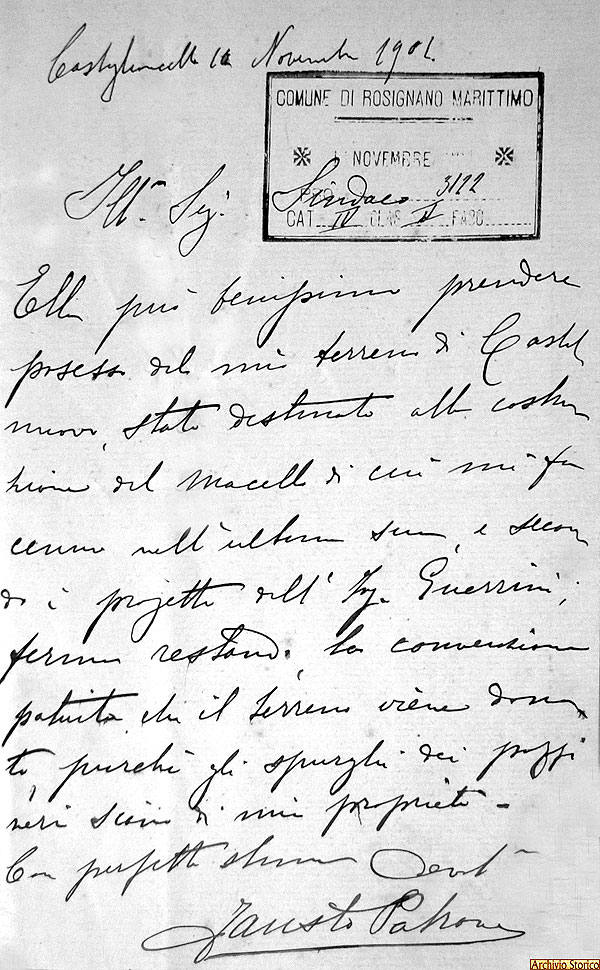 Castiglioncello 12 Novembre 1901.
COMUNE DI ROSIGNANO MARITTIMO
NOVEMBRE
3122
CAT. IV CLAS. V FASC.
Ill.mo Sig. Sindaco
Ella può benissimo prendere
possesso del mio terreno di Castel
nuovo, stato destinato alla costru
zione del Macello di cui mi fa
cenno nell'ultima sua, e secon
do i progetti dell'Ing. Guerrini;
fermo restando, la convenzione
patuita che il terreno viene dona
to, purchè gli spurghi dei pozzi
neri siano di mia proprietà -
Con perfetta stima Devot.mo
Fausto Patrone
Archivio Storico